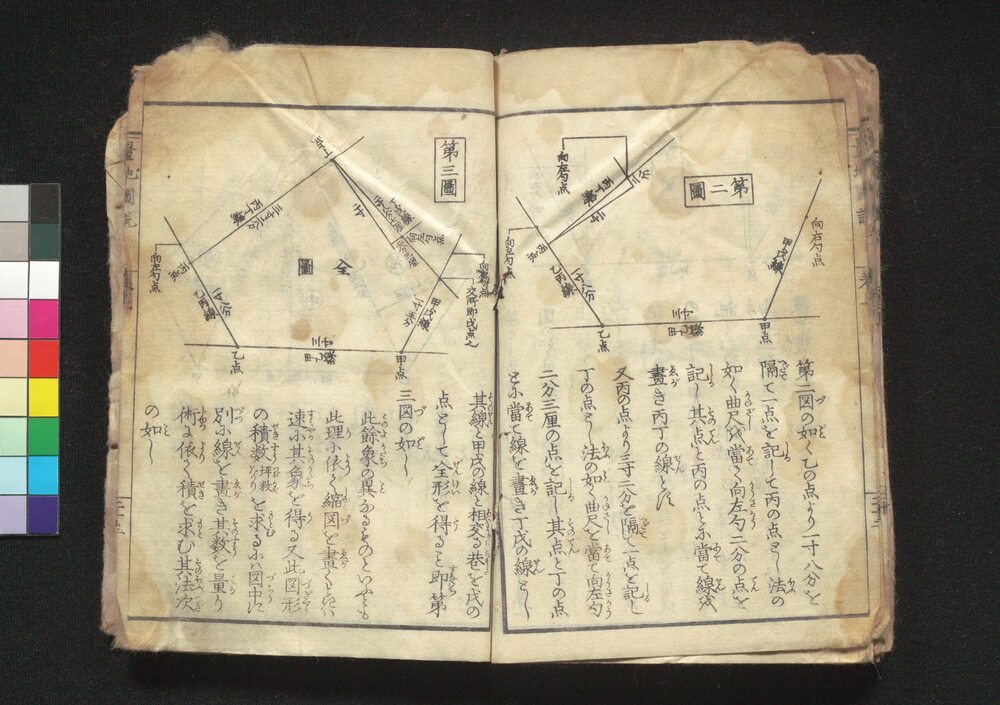 第二圖
向右勺点
甲戊線
甲点
三寸
甲乙線
乙点
一寸八分
乙丙線
丙点
向左勺点
丙丁線
向右勺点
第二図の如く乙の点より一寸八分を
隔て一点を記して丙の点とし法の
如く曲尺を當て向左勺二分の点を
記し其点と丙の点とに當て線を
畫き丙丁の線とす
又丙の点より三寸二分を隔て一点を記し
丁の点とし法の如く曲尺を當て向左勺
二分三厘の点を記し其点と丁の点
とに當て線を畫き丁戊の線とし
第三圖
全圖
交所即戊点之
甲戊線
甲点
三寸
甲乙線
乙点
一寸八分
乙丙線
丙点
向左勺点
三寸二分
丙丁線
丁点
其線と甲戊の線と相交る巷を戊の
点として全形を得ると即第
三図の如し
此餘象の異なるものといへとも
此理に依て縮図を畫くときハ
速に其象を得る又此図形
の積数坪数なりを求るにハ図中に
別に線を畫き其数を量り
術に依て積を求む其法次
の如し
量地圖説